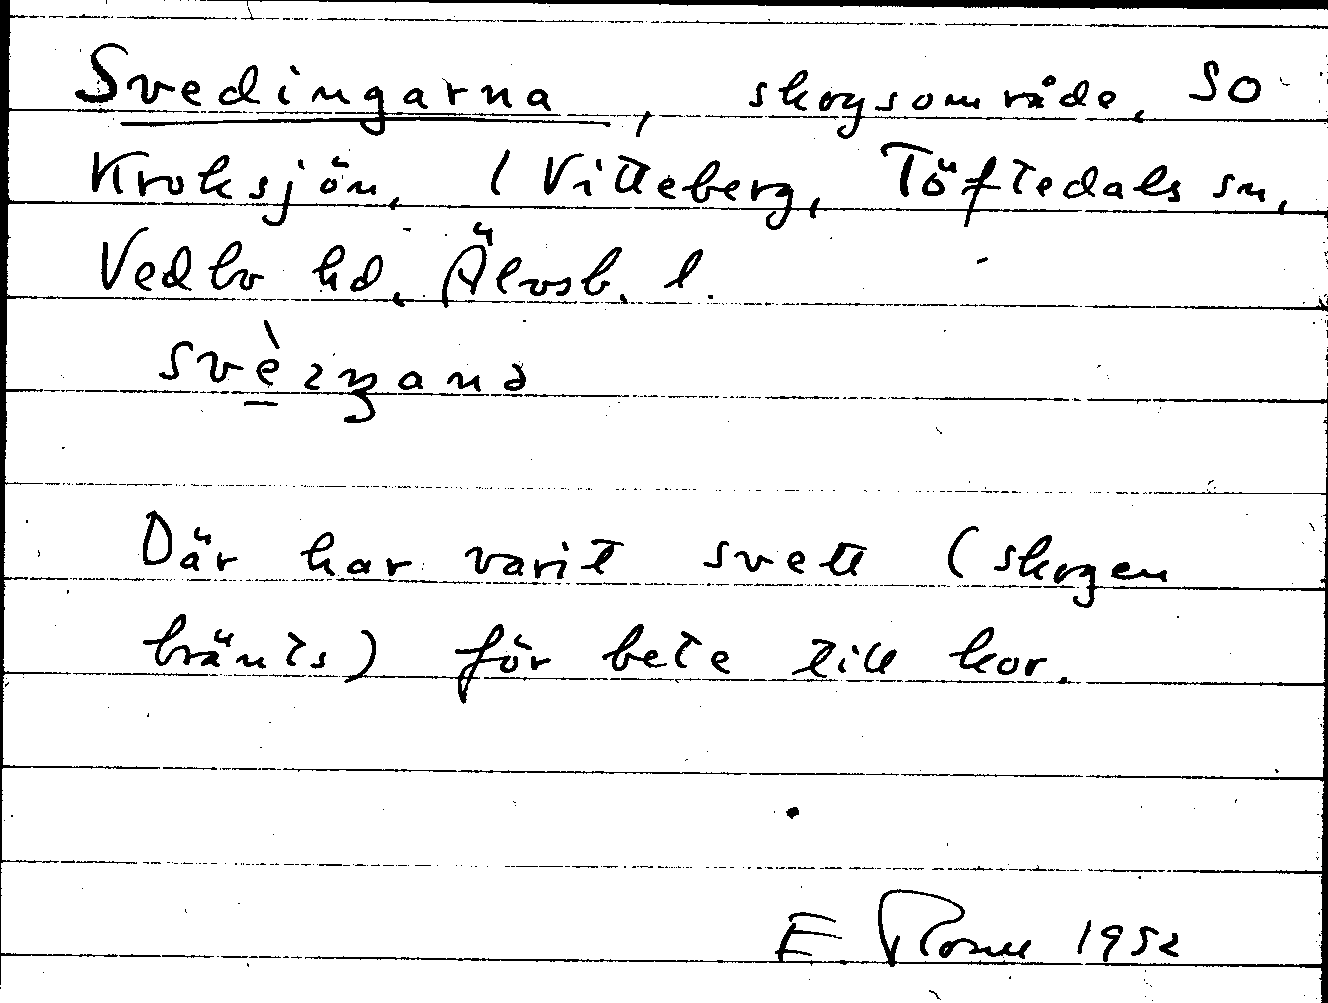 Svedingarna, skogsområde, SO
Kroksjön, (Vitteberg, Töftedals sn,
Vedbo hd, Älvsb. l.
Där har varit svett (skogen
bränts) för bete till kor.
E. 1952